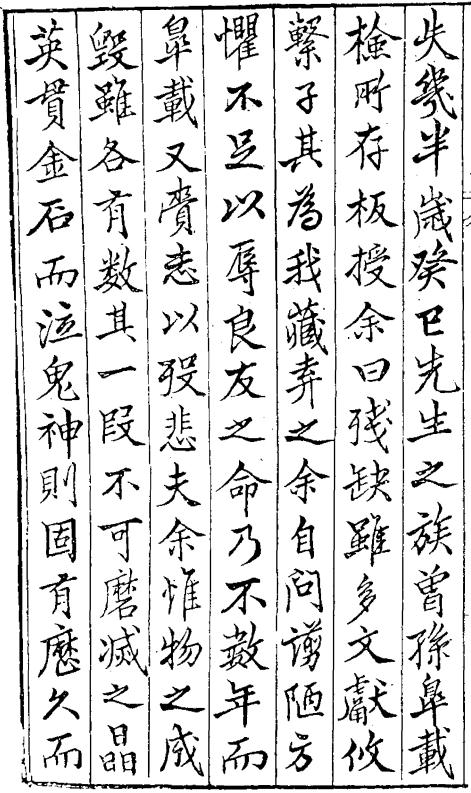 失幾半歲癸巳先生之族曾孫臯載
檢所存板授余曰殘缺雖多文獻攸
繫子其為我藏弆之余自問謭陋方
懼不足以辱良友之命乃不數年而
臯載又賫志以歿悲夫余惟物之成
毀雖各有数其一段不可磨滅之晶
英貫金石而泣鬼神則固有歷久而